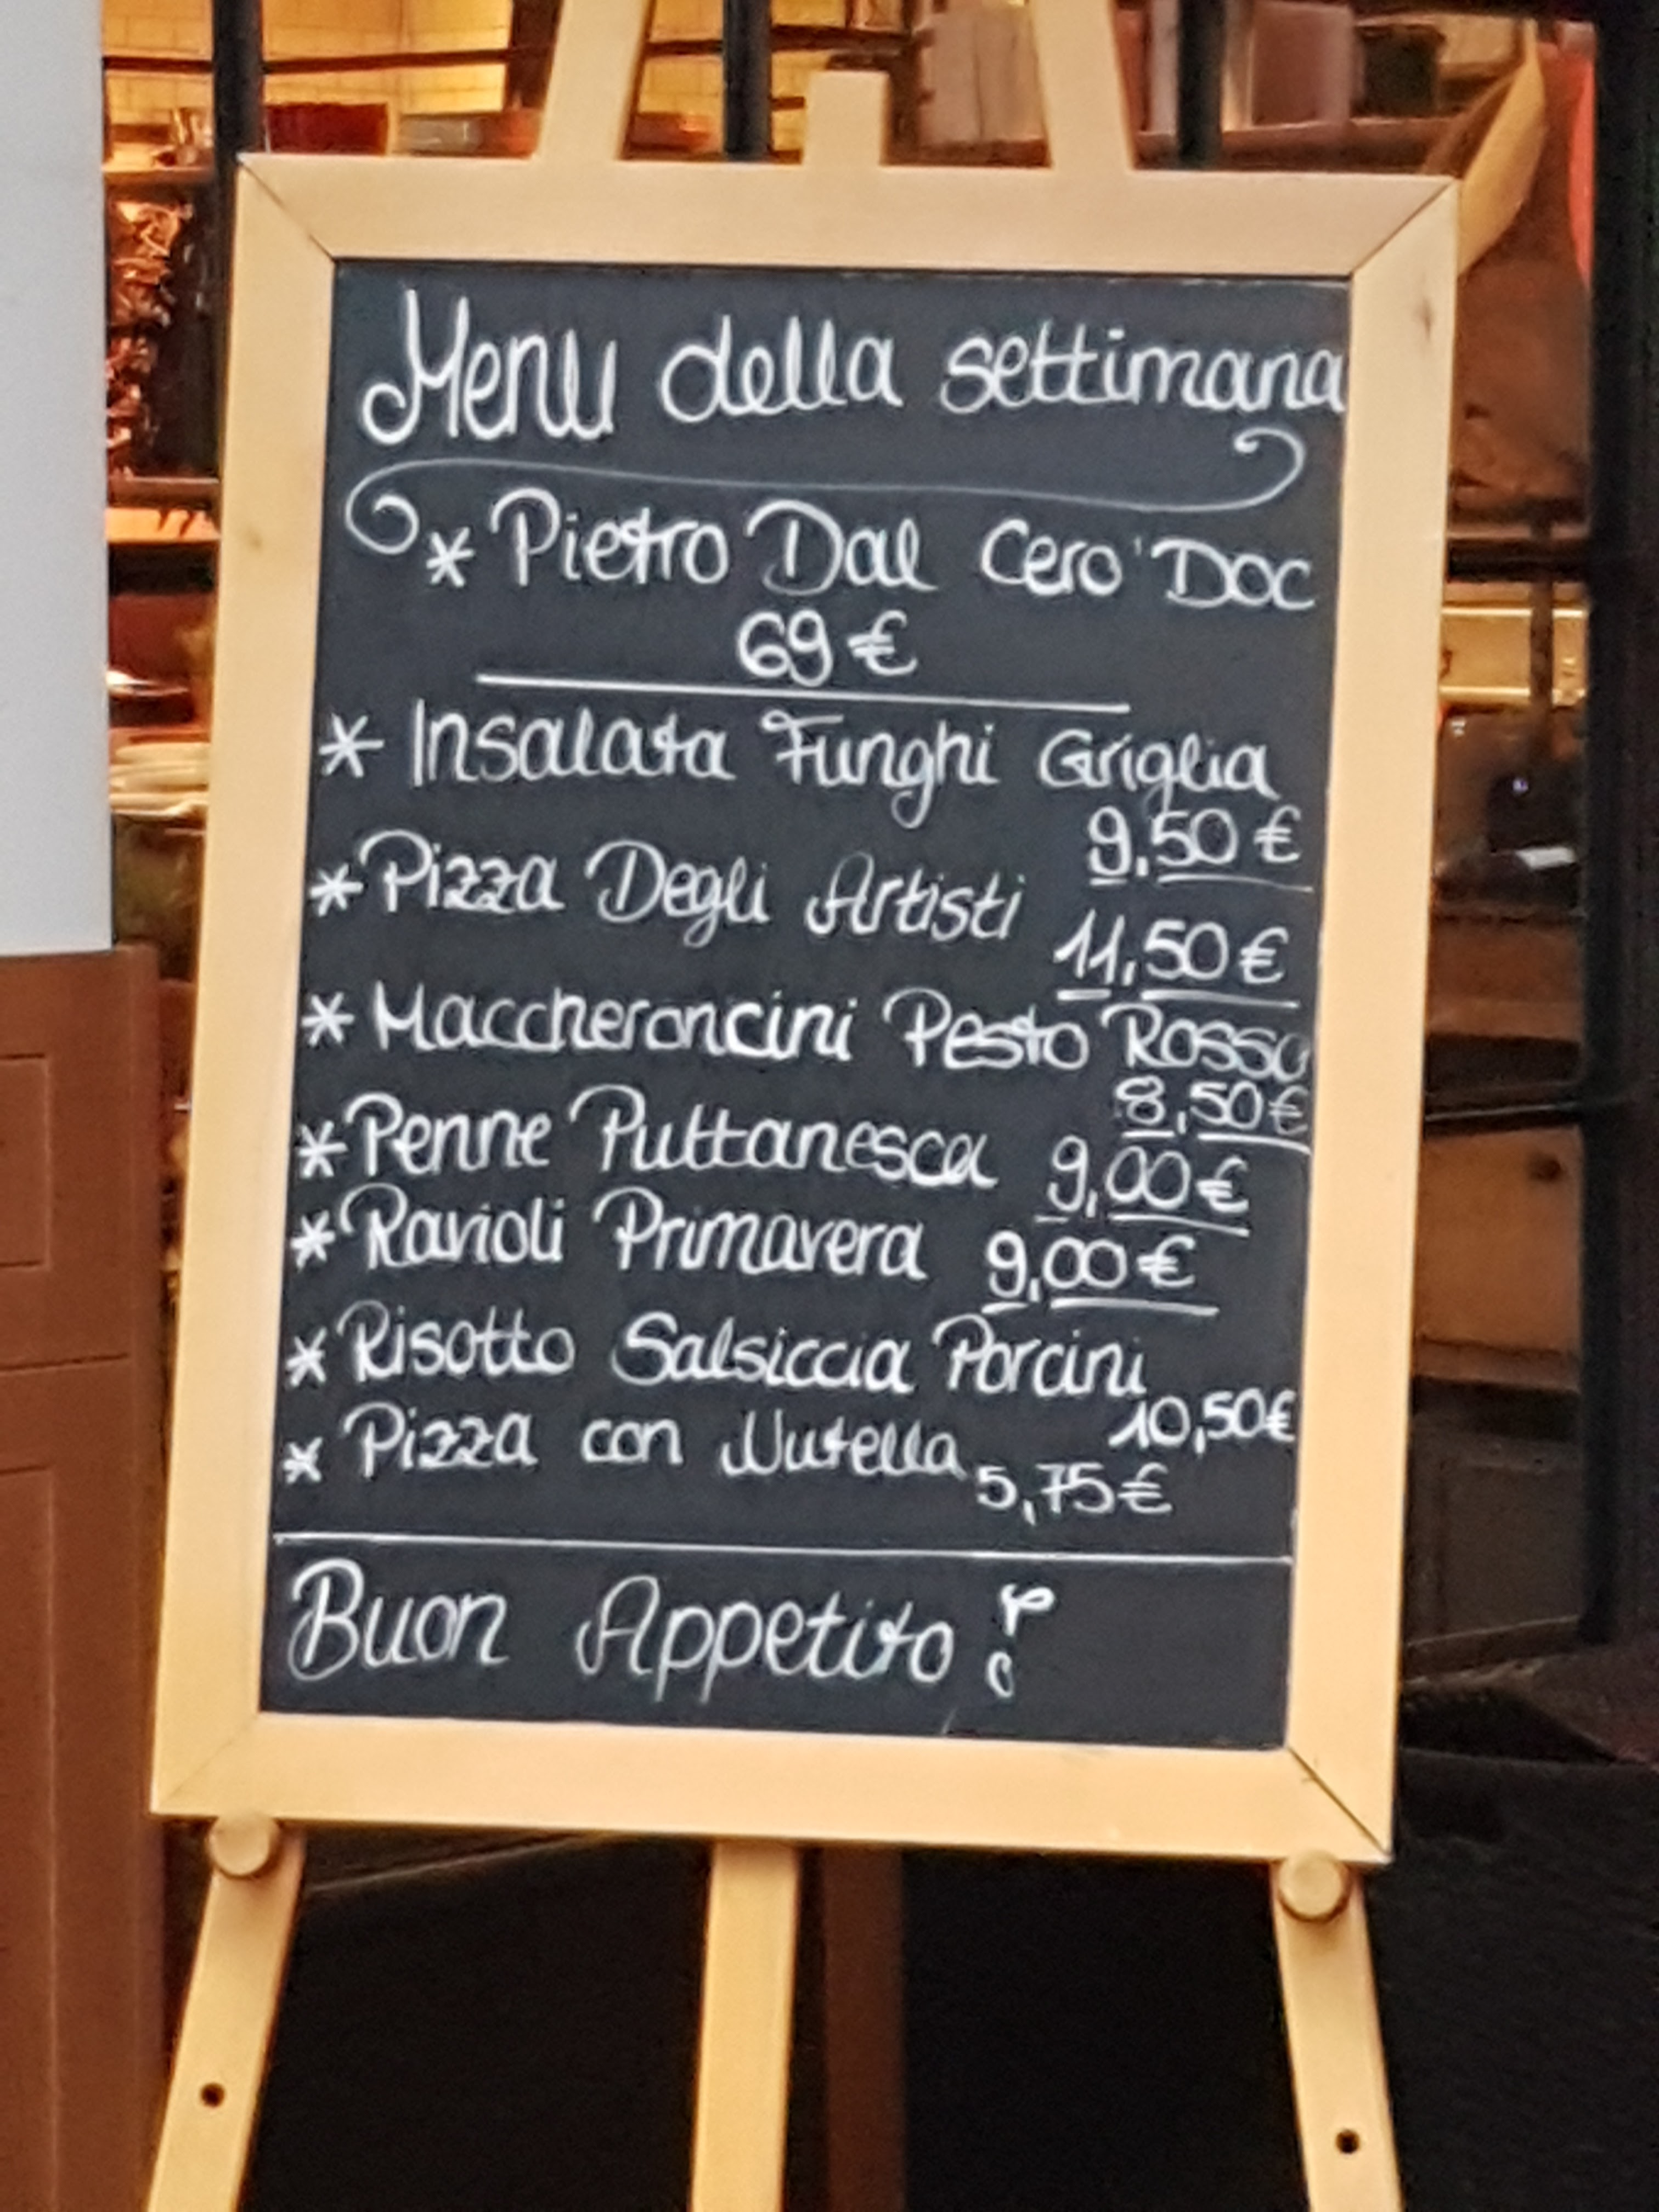 Menu della settimana
* Pietro Dal Cero' Doc
69 €
* Insalata Funghi Griglia
9,50 €
* Pizza Degli Artisti 11,50 €
* Maccheroncini Pesto Rosso
8,50 €
* Penne Puttanesca 9,00 €
* Ravioli Primavera 9,00 €
* Risotto Salsiccia Porcini
10,50€
* Pizza con Nutella 5,75€
Buon Appetito !